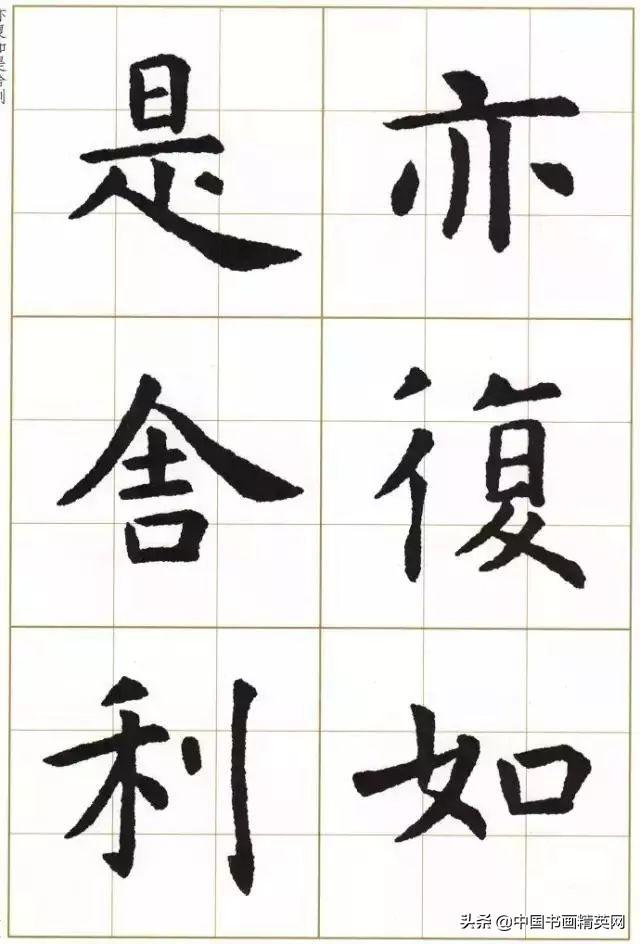 亦復如
是舍利
亦复如是舍利
头条 @中国书画精英网